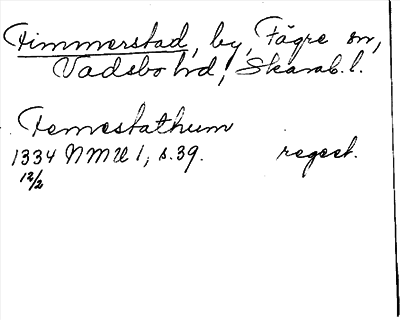 Timmerstad, by, Fägre sn,
Vadsbo hd, Skarab. l.
Temestathum
1334 NMU 1, s. 39. regest.
12/2